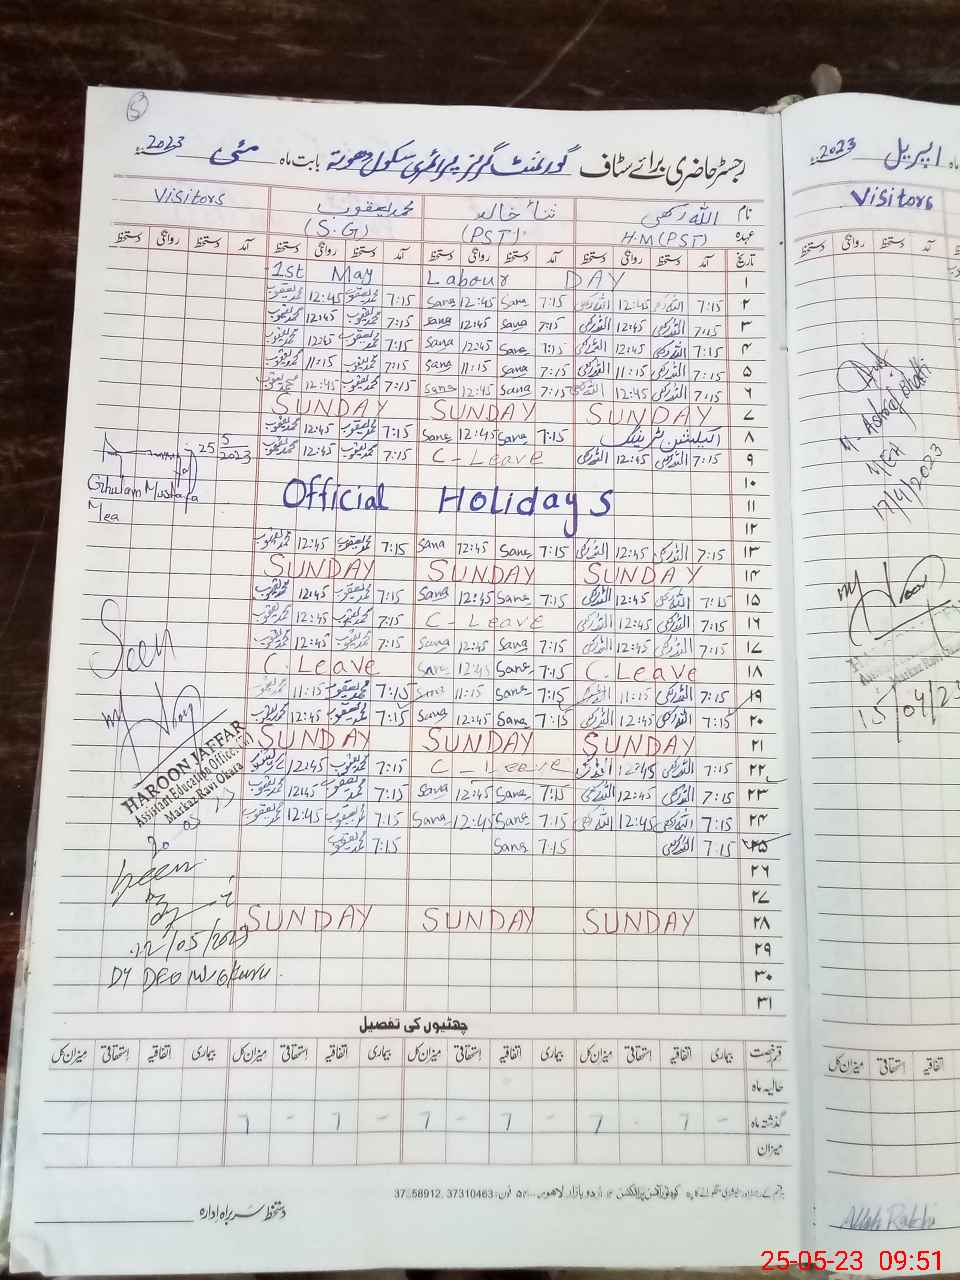 5
رجسٹر حاضری برائے سٹاف گورنمنٹ گرلز پرائمری سکول بابت ماہ مئی 2023
نام اللہ رکھی ثناء خالد محمد یعقوب Visitors
عہدہ H.M (PST) (PST) (S.G)
تاریخ آمد دستخط روانگی دستخط آمد دستخط روانگی دستخط آمد دستخط روانگی دستخط آمد دستخط روانگی دستخط
۱ 1st May Labour DAY
۲ 7:15 اللہ رکھی 12:45 اللہ رکھی 7:15 Sana 12:45 Sana 7:15 محمد یعقوب 12:45 محمد یعقوب
۳ 7:15 اللہ رکھی 12:45 اللہ رکھی 7:15 Sana 12:45 Sana 7:15 محمد یعقوب 12:45 محمد یعقوب
۴ 7:15 اللہ رکھی 12:45 اللہ رکھی 7:15 Sana 12:45 Sana 7:15 محمد یعقوب 12:45 محمد یعقوب
۵ 7:15 اللہ رکھی 11:15 اللہ رکھی 7:15 Sana 11:15 Sana 7:15 محمد یعقوب 11:15 محمد یعقوب
۶ 7:15 اللہ رکھی 12:45 اللہ رکھی 7:15 Sana 12:45 Sana 7:15 محمد یعقوب 12:45 محمد یعقوب
۷ SUNDAY SUNDAY SUNDAY
۸ الیکشن ٹریننگ 7:15 Sana 12:45 Sana 7:15 محمد یعقوب 12:45 محمد یعقوب
۹ 7:15 اللہ رکھی 12:45 اللہ رکھی C-Leave 7:15 محمد یعقوب 12:45 محمد یعقوب
۱۰
۱۱ Official Holidays
۱۲
۱۳ 7:15 اللہ رکھی 12:45 اللہ رکھی 7:15 Sana 12:45 Sana 7:15 محمد یعقوب 12:45 محمد یعقوب
۱۴ SUNDAY SUNDAY SUNDAY
۱۵ 7:15 اللہ رکھی 12:45 اللہ رکھی 7:15 Sana 12:45 Sana 7:15 محمد یعقوب 12:45 محمد یعقوب
۱۶ 7:15 اللہ رکھی 12:45 اللہ رکھی C-Leave 7:15 محمد یعقوب 12:45 محمد یعقوب
۱۷ 7:15 اللہ رکھی 12:45 اللہ رکھی 7:15 Sana 12:45 Sana 7:15 محمد یعقوب 12:45 محمد یعقوب
۱۸ C.Leave 7:15 Sana 12:45 Sana C.Leave
۱۹ 7:15 اللہ رکھی 11:15 7:15 Sana 11:15 Sana 7:15 محمد یعقوب 11:15 محمد یعقوب
۲۰ 7:15 اللہ رکھی 12:45 اللہ رکھی 7:15 Sana 12:45 Sana 7:15 محمد یعقوب 12:45 محمد یعقوب
۲۱ SUNDAY SUNDAY SUNDAY
۲۲ 7:15 اللہ رکھی 12:45 C-Leave 7:15 محمد یعقوب 12:45
۲۳ 7:15 اللہ رکھی 12:45 اللہ رکھی 7:15 Sana 12:45 Sana 7:15 محمد یعقوب 12:45 محمد یعقوب
۲۴ 7:15 اللہ رکھی 12:45 اللہ رکھی 7:15 Sana 12:45 Sana 7:15 محمد یعقوب 12:45 محمد یعقوب
۲۵ 7:15 اللہ رکھی 7:15 Sana 7:15 محمد یعقوب
۲۶
۲۷
۲۸ SUNDAY SUNDAY SUNDAY
۲۹
۳۰
۳۱
25/5/2023
Ghulam Mustafa
Mea
Seen
HAROON JAFFAR
Assistant Education Officer
Markaz Ravi Okara
20 05
Seen
22/05/2023
DY DEO
چھٹیوں کی تفصیل
قسم رخصت بیماری اتفاقیہ استحقاقی میزان کل بیماری اتفاقیہ استحقاقی میزان کل بیماری اتفاقیہ استحقاقی میزان کل بیماری اتفاقیہ استحقاقی میزان کل
حالیہ ماہ
گذشتہ ماہ - 7 - 7 - 7 - 7 - 7 - 7
میزان
اردو بازار لاہور فون: 37310463
دستخط سربراہ ادارہ
ماہ اپریل 2023
Visitors
آمد دستخط روانگی دستخط
M. Ashraf Bhatti
MEA
17/4/2023
Markaz Ravi
15/04/23
اتفاقیہ استحقاقی میزان کل
Allah Rakhi
25-05-23 09:51